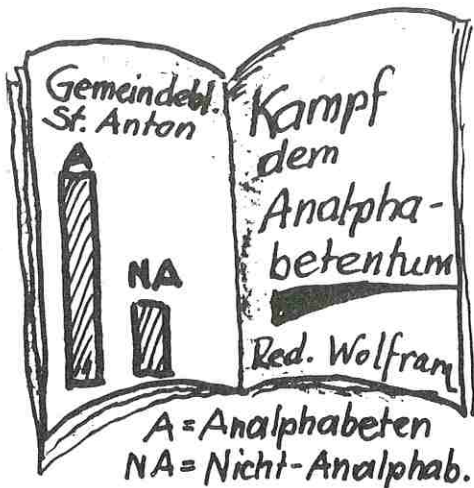 Gemeindebl.
St. Anton
A
NA
Kampf
dem
Analpha-
betentum
Red. Wolfram
A = Analphabeten
NA = Nicht-Analphab.